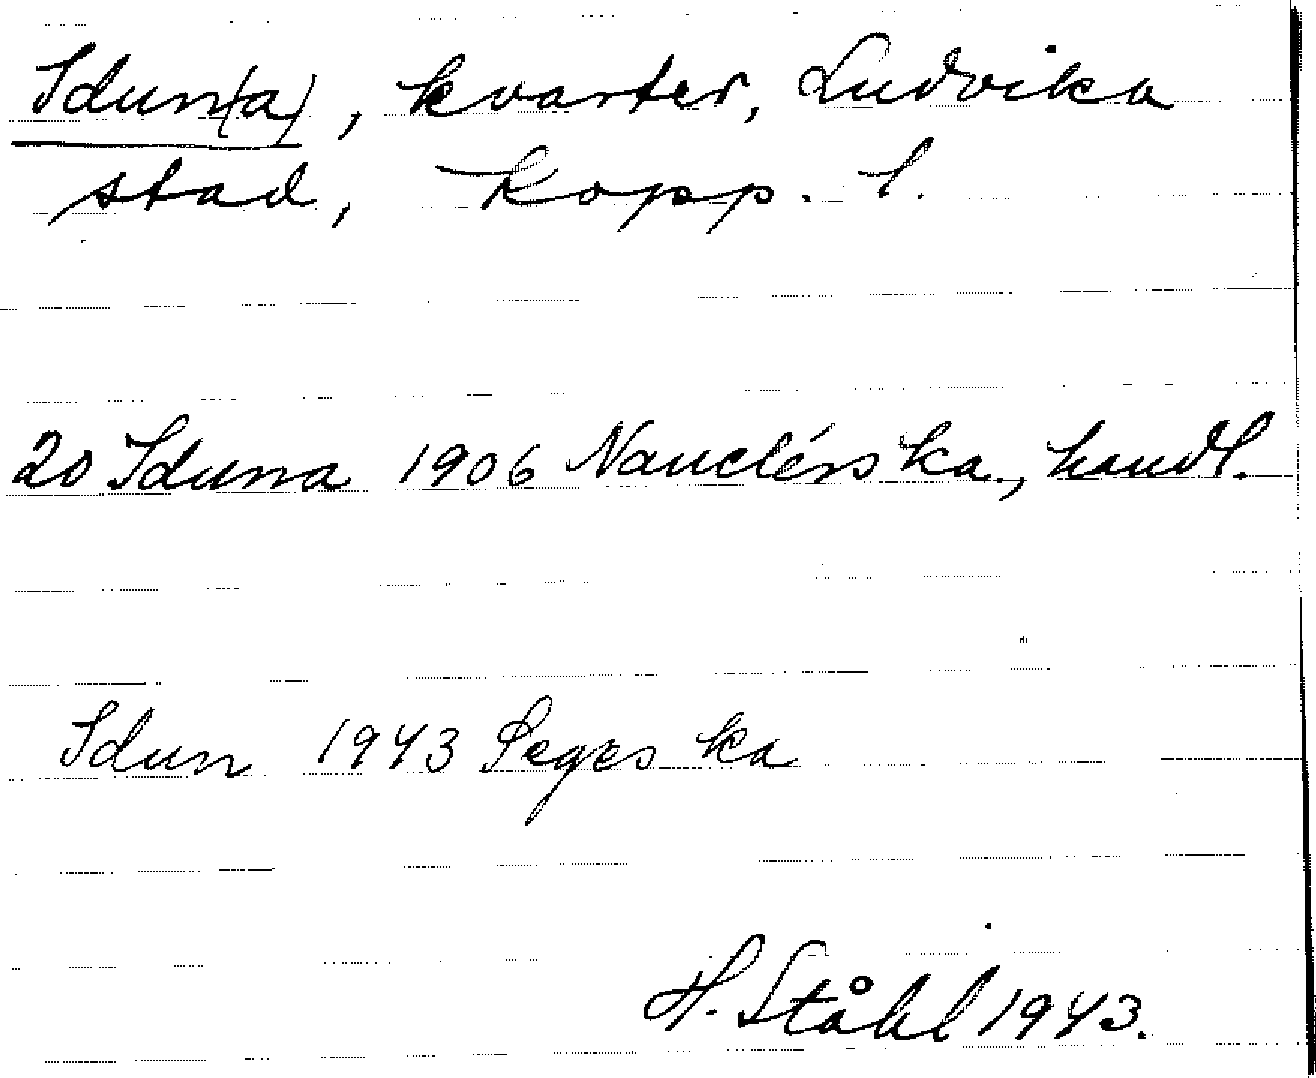 Idun(a), kvarter, Ludvika
stad, Kopp. l.
20 Iduna 1906 Nauclérs ka., handl.
Idun 1943 Seges ka
H. Ståhl 1943.